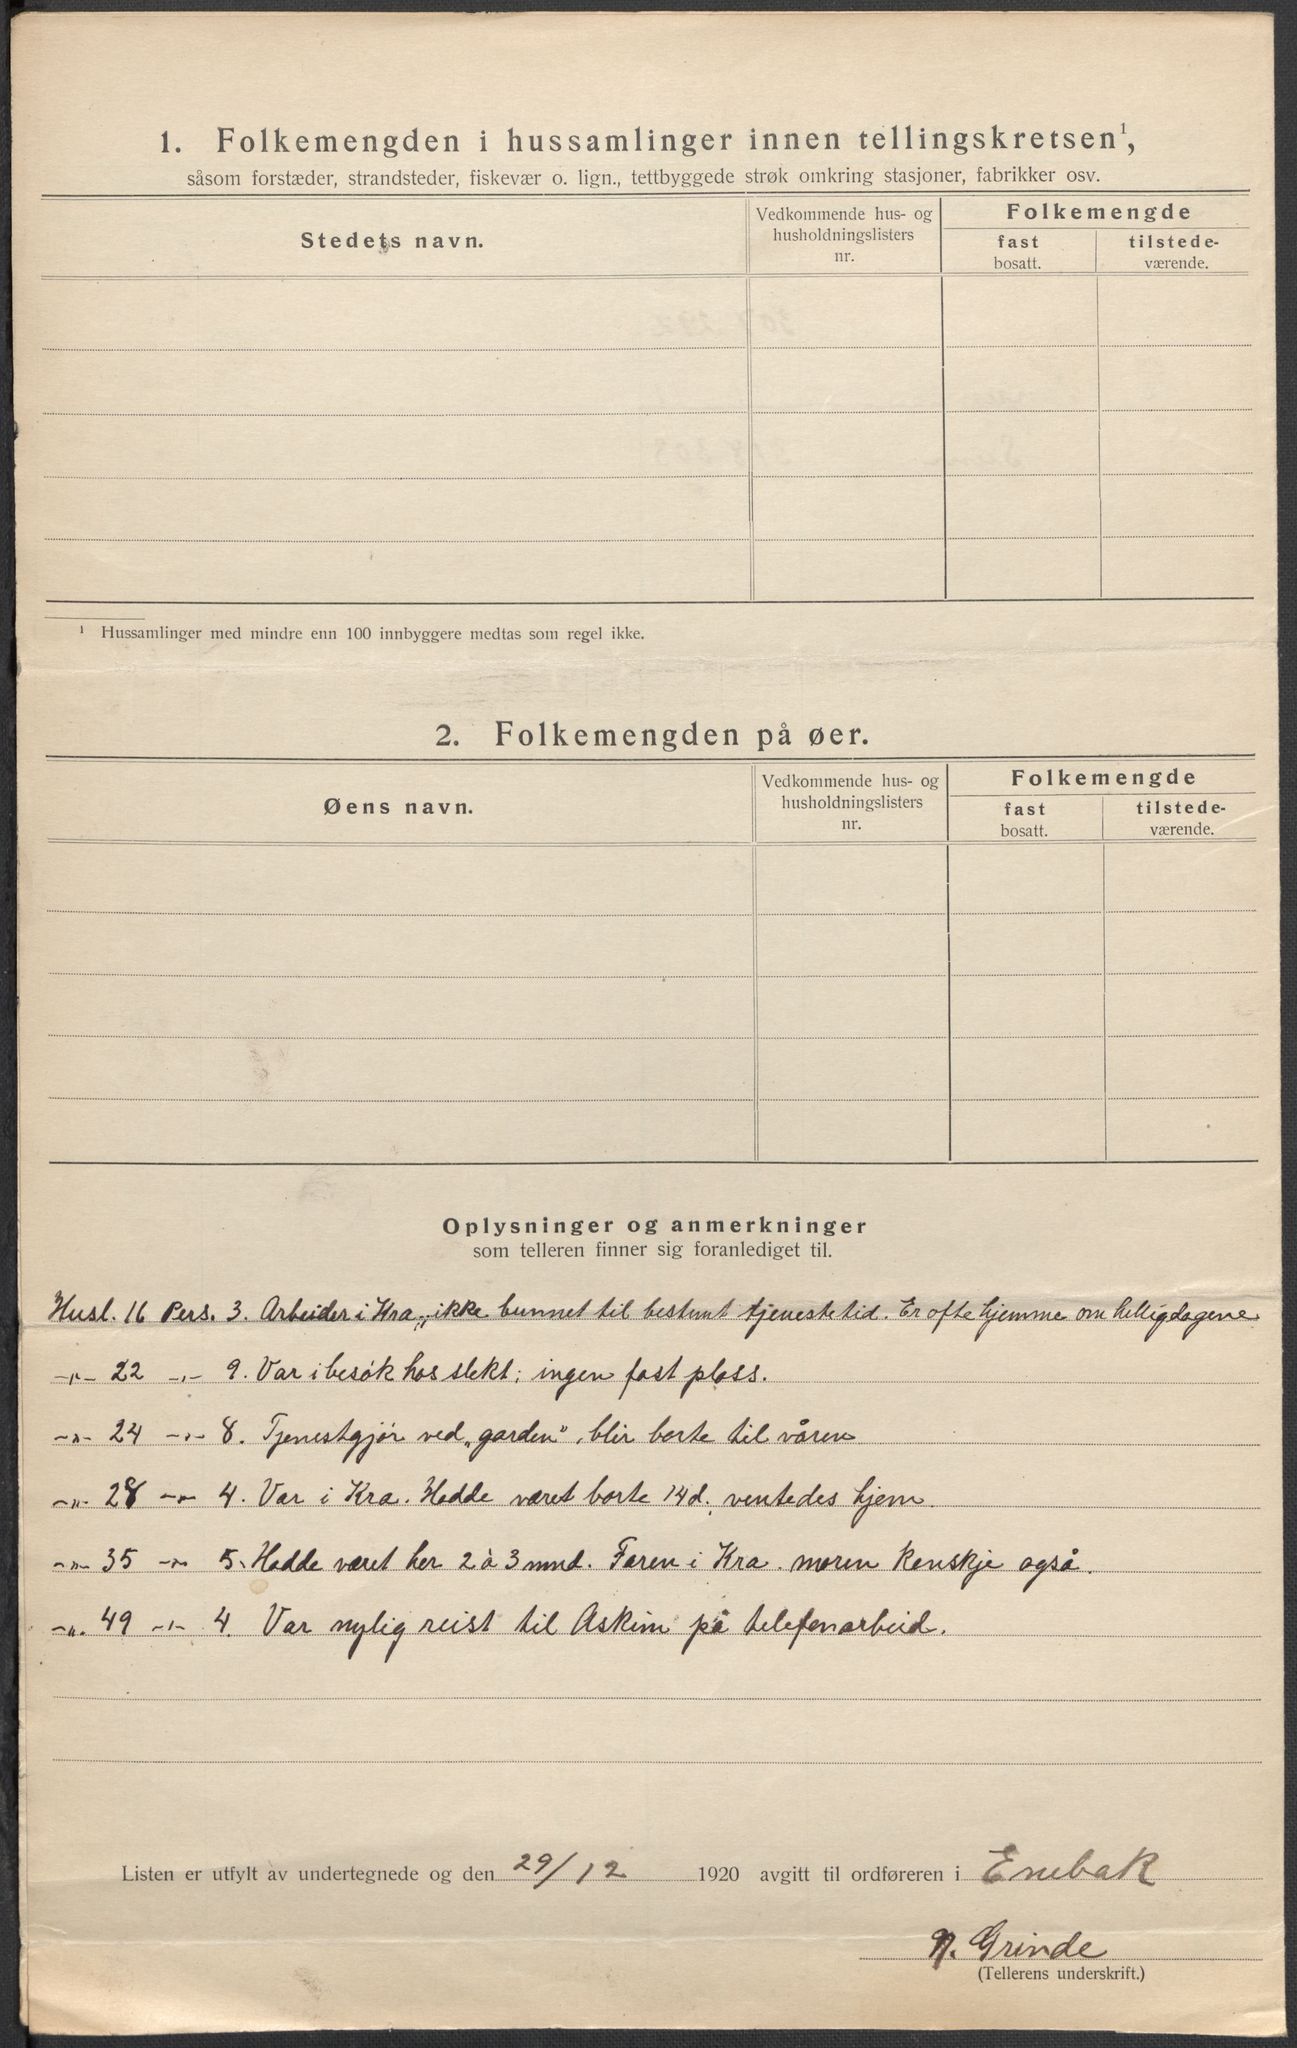 1. Folkemengden i hussamlinger innen tellingskretsen¹,
såsom forstæder, strandsteder, fiskevær o. lign., tettbyggede strøk omkring stasjoner, fabrikker osv.
Stedets navn.
Vedkommende hus- og
husholdningslisters
nr.
Folkemengde
fast
bosatt.
tilstede-
værende.
¹ Hussamlinger med mindre enn 100 innbyggere medtas som regel ikke.
2. Folkemengden på øer.
Øens navn.
Vedkommende hus- og
husholdningslisters
nr.
Folkemengde
fast
bosatt.
tilstede-
værende.
Oplysninger og anmerkninger
som telleren finner sig foranlediget til.
Husl. 16 Pers. 3. Arbeider i Kra., ikke bunnet til bestemt tjenestetid. Er ofte hjemme om helligdagene
-"- 22 -"- 9. Var i besøk hos slekt; ingen fast plass.
-"- 24 -"- 8. Tjenestgjør ved „garden", blir borte til våren
-"- 28 -"- 4. Var i Kra. Hadde været borte 14 d., ventedes hjem.
-"- 35 -"- 5. Hadde været her 2 à 3 mnd. Faren i Kra. moren kanskje også.
-"- 49 -"- 4. Var nylig reist til Askim på telefonarbeid.
Listen er utfylt av undertegnede og den 29/12 1920 avgitt til ordføreren i Enebak
N. Grinde
(Tellerens underskrift.)